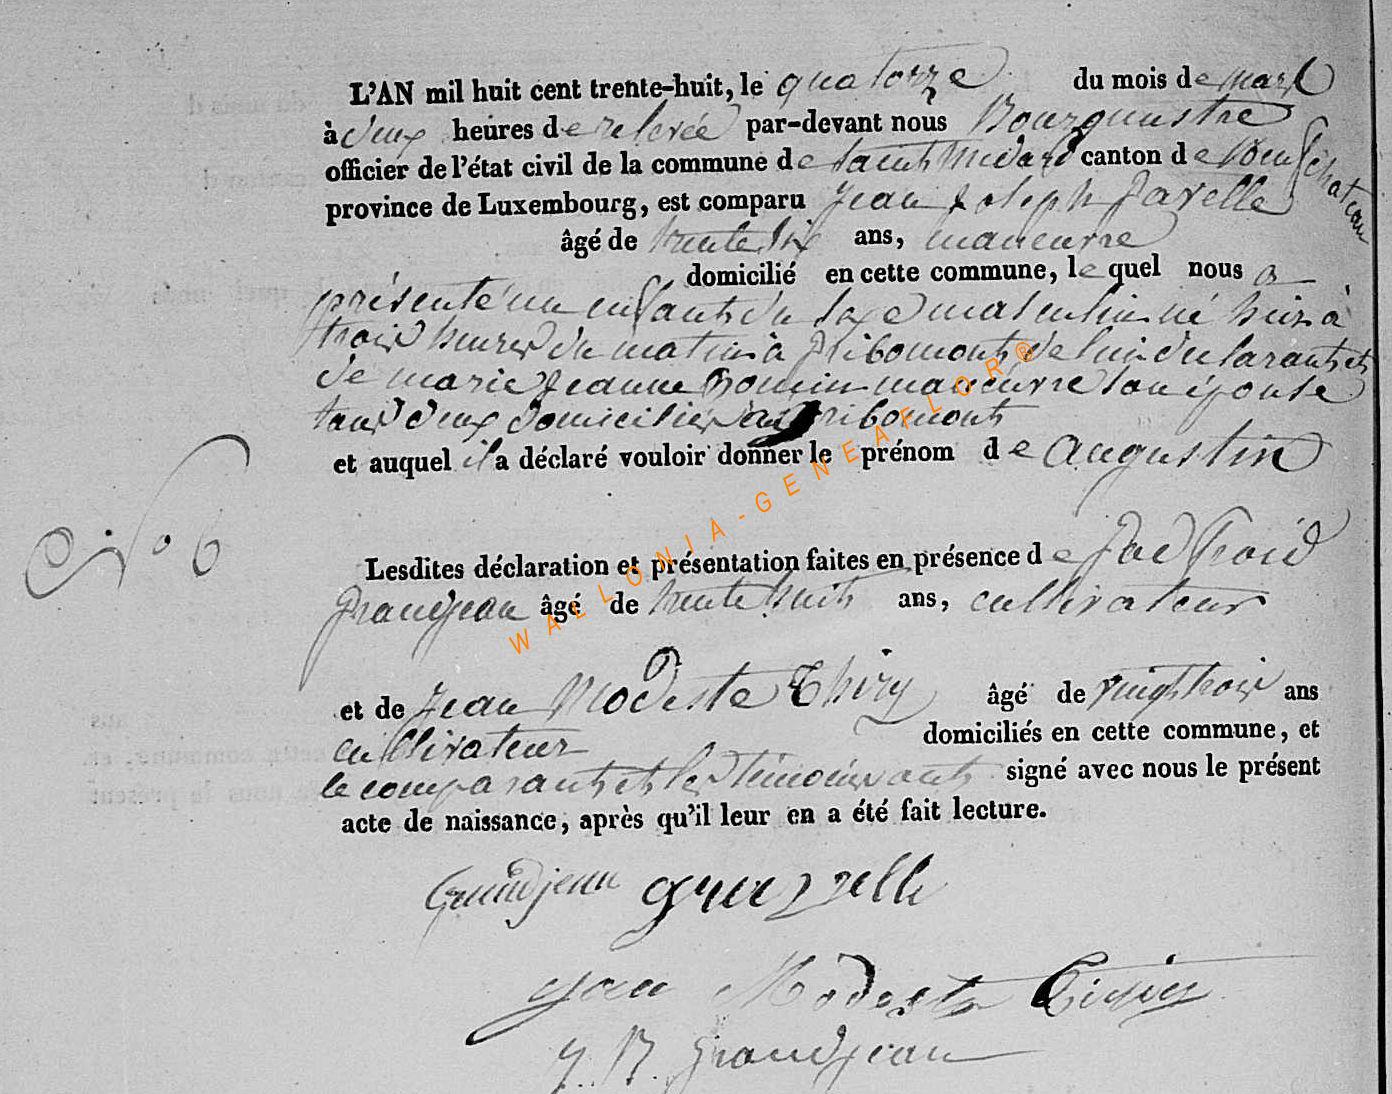 L'AN mil huit cent trente-huit, le quatorze du mois de mars
à deux heures de relevée par-devant nous Bourguestre
officier de l'état civil de la commune de Saint Médard canton de Neufchateau
province de Luxembourg, est comparu Jean Joseph
âgé de trente six ans, maneuvre
domicilié en cette commune, lequel nous a
présenté un enfant du sexe masculin né hier à
trois heures du matin à Gribomont de lui déclarant et
de marie Jeanne maneuvre son épouse
tous deux domiciliés à Gribomont
et auquel il a déclaré vouloir donner le prénom de Augustin
N° 6
Lesdites déclaration et présentation faites en présence de
Grandjean âgé de trente huit ans, cultivateur
et de Jean Modeste Thiry âgé de vingt trois ans
cultivateur domiciliés en cette commune, et
le comparant et les témoins ont signé avec nous le présent
acte de naissance, après qu'il leur en a été fait lecture.
Grandjean
Jean Modeste
J. B. Grandjean
WALLONIA-GENEAFLOR®